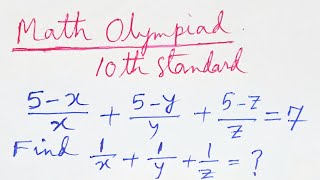 Math Olympiad.
10th Standard
(5-x)/x + (5-y)/y + (5-z)/z = 7
Find 1/x + 1/y + 1/z = ?